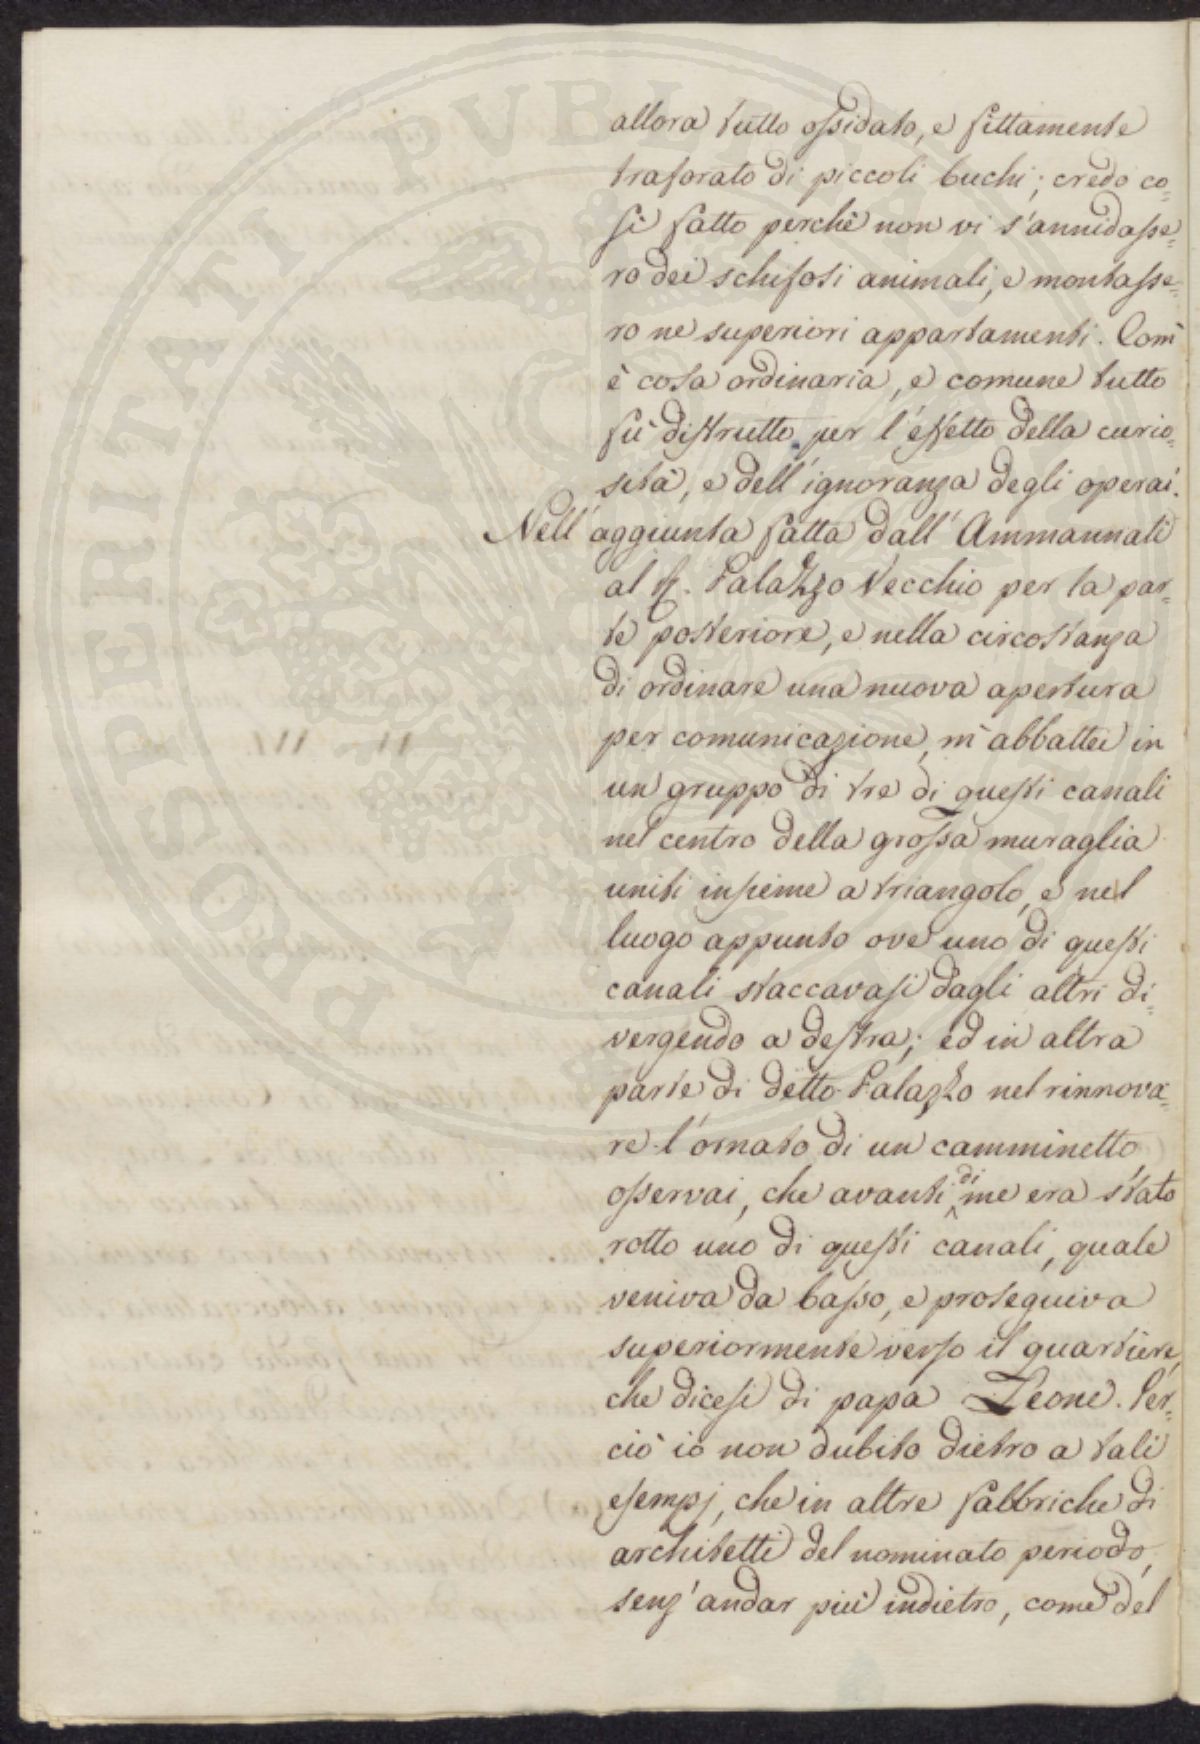 allora tutto ossidato, e fittamente
traforato di piccoli buchi; credo co=
sì fatto perchè non vi s'annidasse=
ro dei schifosi animali, e montasse=
ro ne superiori appartamenti. Com'
è cosa ordinaria, e comune tutto
fù distrutto per l'effetto della curio=
sità, e dell'ignoranza degli operai.
Nell'aggiunta fatta dall'Ammannati
al R. Palazzo Vecchio per la par=
te posteriore, e nella circostanza
di ordinare una nuova apertura
per comunicazione, m'abbattei in
un gruppo di tre di questi canali
nel centro della grossa muraglia
uniti insieme a triangolo, e nel
luogo appunto ove uno di questi
canali staccavasi dagli altri di=
vergendo a destra; ed in altra
parte di detto Palazzo nel rinnova=
re l'ornato di un camminetto
osservai, che avanti di me era stato
rotto uno di questi canali, quale
veniva da basso, e proseguiva
superiormente verso il quartiere,
che dicesi di papa Leone. Per=
ciò io non dubito dietro a tali
esempj, che in altre fabbriche di
architetti del nominato periodo,
senz'andar più indietro, come del
PROSPERITATI PVBLICAE